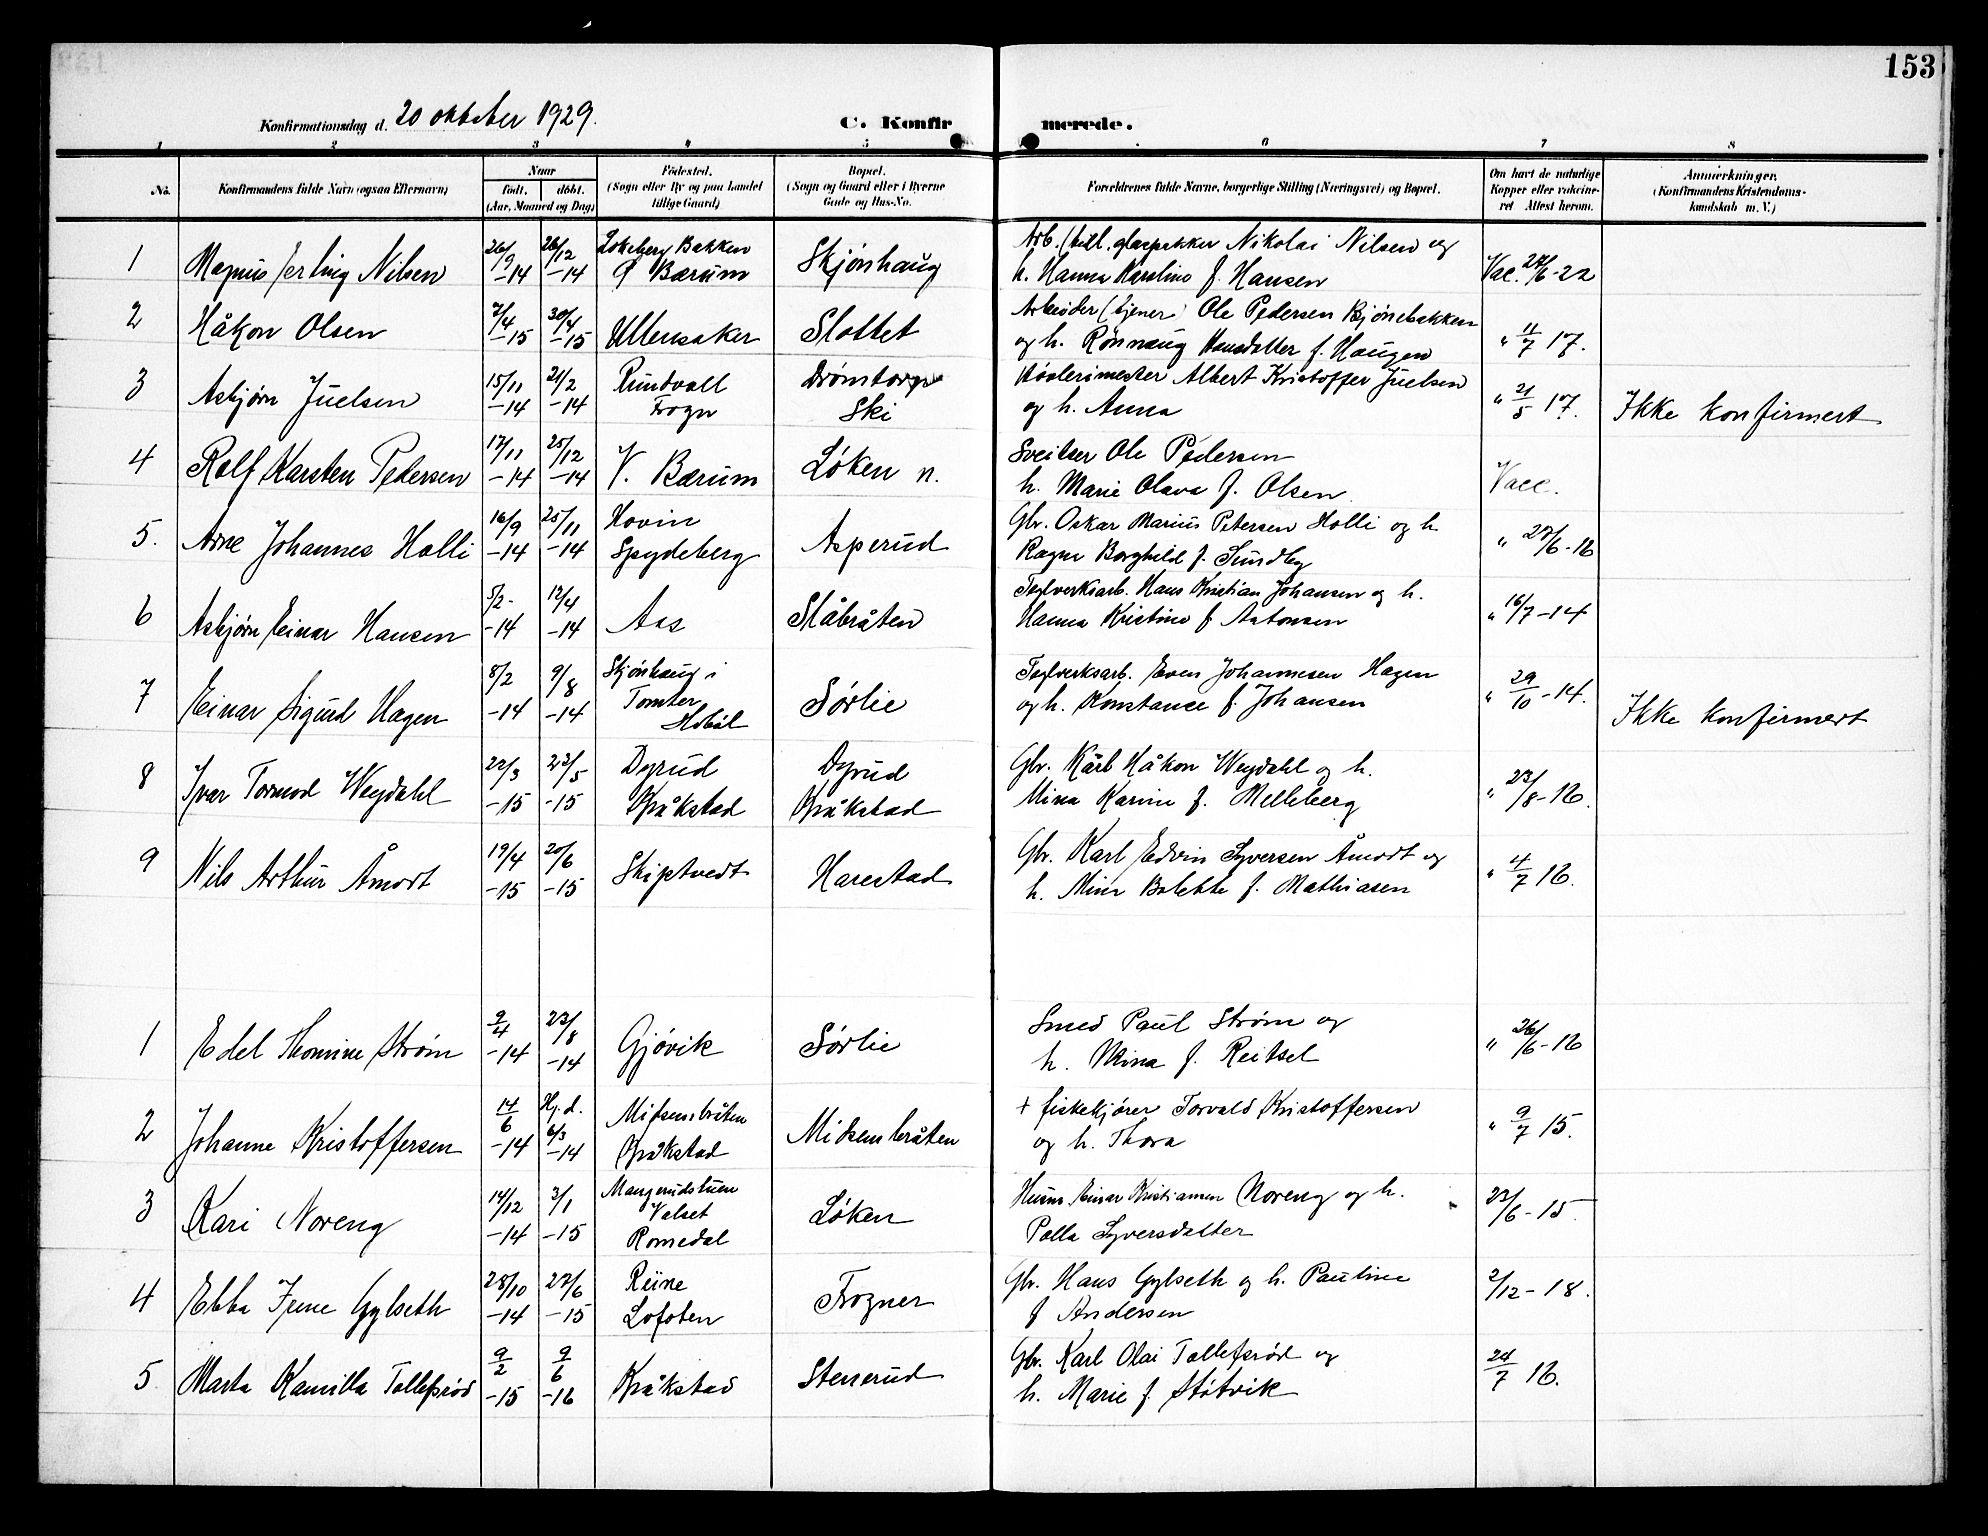 153
Konfirmationsdag d. 20 oktober 1929.
C. Konfirmerede.
1 2 3 4 5 6 7 8
No. Konfirmandens fulde Navn (ogsaa Efternavn) Naar født, døbt. (Aar, Maaned og Dag) Fødested. (Sogn eller By og paa Landet tillige Gaard) Bopæl. (Sogn og Gaard eller i Byerne Gade og Hus-No. Forældrenes fulde Navne, borgerlige Stilling (Næringsvei) og Bopæl. Om havt de naturlige Kopper eller vakcineret Attest herom. Anmærkninger. (Konfirmandens Kristendomskundskab m. V.)
1 Magnus Erling Nilsen 26/9 -14 26/12 -14 Bakken Ø Bærum Skjønhaug Arb. (tidl. glaspakker Nikolai Nilsen og
h. Hanna Karoline f. Hansen Vac. 24/6-22
2 Håkon Olsen 7/4 -15 30/4 -15 Ullensaker Slottet Arbeider (tjener) Ole Pedersen Bjønebakken
og h. Rønnaug Hansdatter f. Haugen " 11/7 17.
3 Asbjørn Juelsen 15/11 -14 21/2 -14 Rundvoll Frogn Drømtorp Ski Høvlerimester Albert Kristoffer Juelsen
og h. Anna " 21/5 17. Ikke konfirmert
4 Rolf Karsten Pedersen 17/11 -14 25/12 -14 V. Bærum Løken n. Sveitser Ole Pedersen
h. Marie Olava f. Olsen Vacc.
5. Arne Johannes Holli 16/9 -14 25/11 -14 Hovin Spydeberg Asperud Gbr. Oskar Marius Petersen Holli og h.
Ragna Borghild f. Sundby " 27/6-16
6 Asbjørn Einar Hansen 5/2 -14 12/4 -14 Aas Slåbråten Teglverksarb. Hans Kristian Johansen og h.
Hanna Kristine f Antonsen " 16/7-14
7 Einar Sigurd Hagen 8/2 -14 9/8 -14 Skjønhaug i Tomter Hobøl Sørlie Teglverksarb. Even Johannesen Hagen
og h. Konstance f. Johansen " 29/10-14. Ikke konfirmert
8 Ivar Tormod Weydahl 22/3 -15 23/5 -15 Dyrud Kråkstad Dyrud Kråkstad Gbr. Karl Håkon Weydahl og h.
Mina Karine f. Melleberg " 23/8-16.
9 Nils Arthur Åmodt 19/4 -15 20/6 -15 Skiptvedt Harestad Gbr. Karl Edvin Syversen Åmodt og
h. Mina Bolette f. Mathiasen " 4/7 16.
1 Edel Thomine Strøm 9/4 -14 23/8 -14 Gjøvik Sørlie Smed Paul Strøm og
h. Mina f. Reitsel " 26/6-16
2 Johanne Kristoffersen 14/6 -14 Hj. d. 6/3 -14 Midsembråten Kråkstad Midsembråten + fiskekjører Torvald Kristoffersen
og h. Thora " 9/7 15.
3 Kari Noreng 14/12 -14 3/1 -15 Mangerudstuen Valset Romedal Løken Husm. Einar Kristiansen Noreng og h.
Polla Syversdatter 23/6-15
4 Ebba Irene Gylseth 28/10 -14 27/6 -15 Reine Lofoten Frogner Gbr. Hans Gylseth og h. Pauline
f Andersen 2/12-18.
5 Marta Kamilla Tollefsrød 9/2 -15 9/6 -16 Kråkstad Stenerud Gbr. Karl Olai Tollefsrød og
h. Marie f. Støtvik 24/7 16.